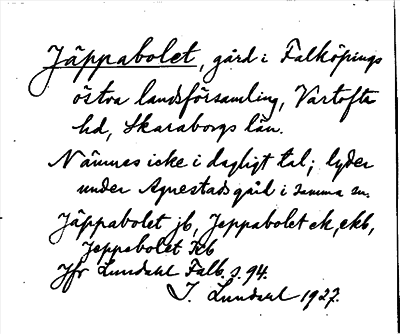 Jäppabolet, gård i Falköpings
östra landsförsamling, Vartofta
hd, Skaraborgs län.
Nämnes icke i dagligt tal; lyder
under Agnestads gård i samma sn.
Jäppabolet jb, Jeppabolet ek, ekb,
Jeppabolet
Jfr Lundahl Falb. s. 94.
I. Lundahl 1927.